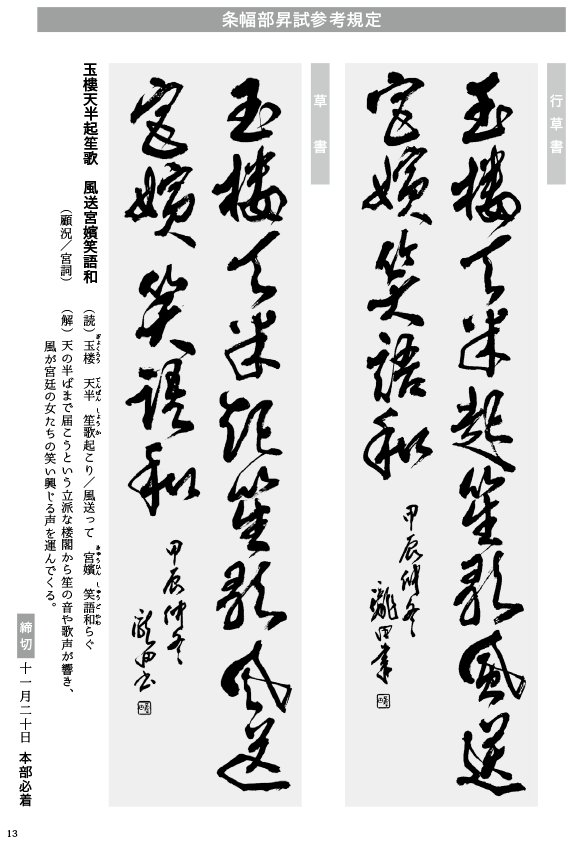 条幅部昇試参考規定
行草書
玉樓天半起笙歌風送
宮嬪笑語和
甲辰仲冬
瀧田書
草書
玉樓天半起笙歌風送
宮嬪笑語和
甲辰仲冬
玉樓天半起笙歌　風送宮嬪笑語和
（顧況／宮詞）
（読）玉楼　天半　笙歌起こり／風送って　宮嬪　笑語和らぐ
（解）天の半ばまで届こうという立派な楼閣から笙の音や歌声が響き、
風が宮廷の女たちの笑い興じる声を運んでくる。
締切　十一月二十日　本部必着
13